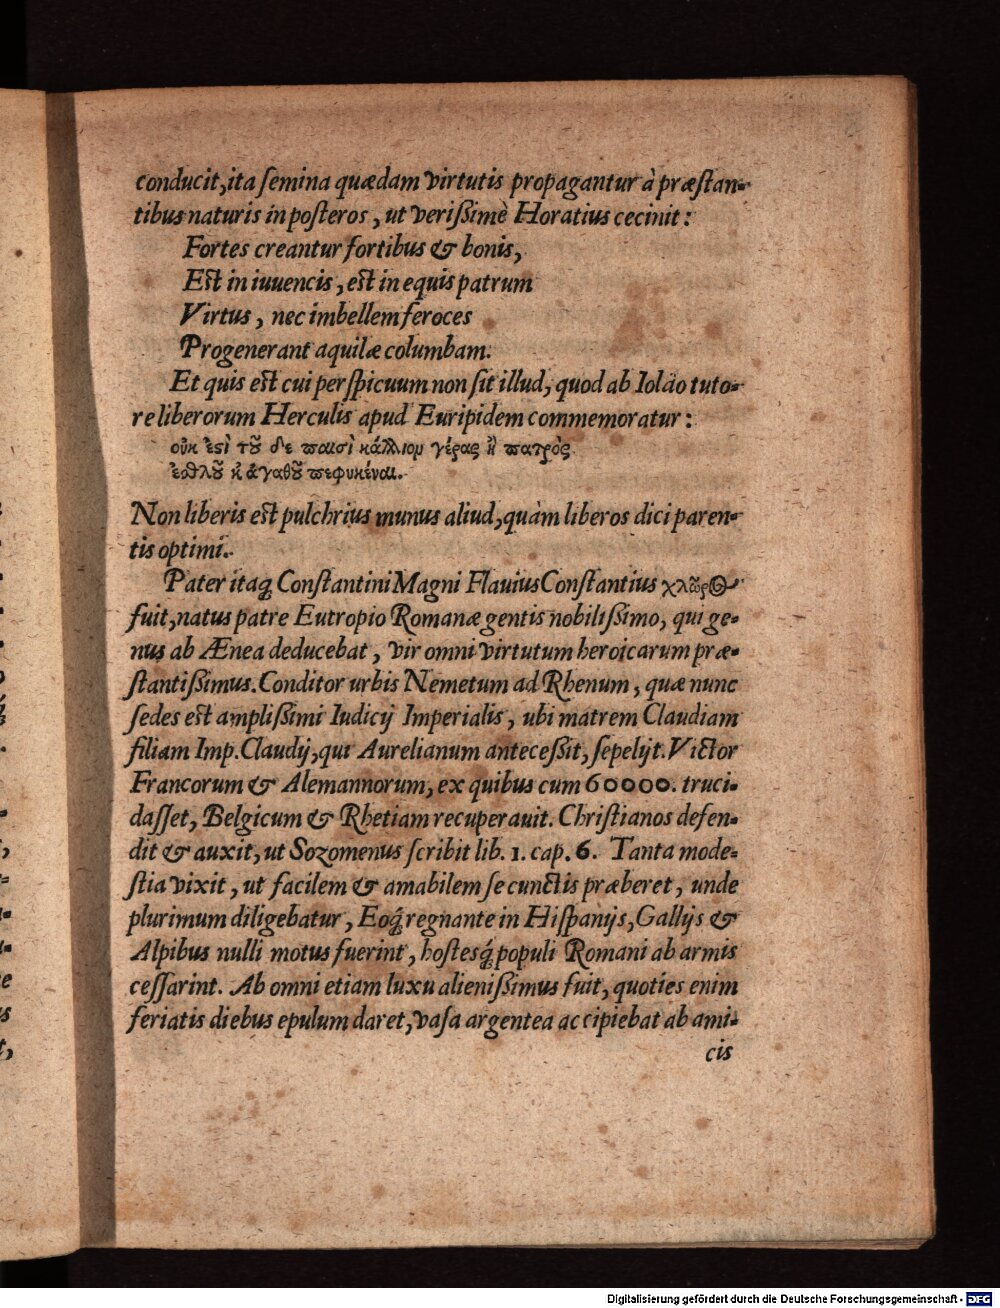 conducit, ita semina quædam virtutis propagantur à præstan-
tibus naturis in posteros, ut verißimè Horatius cecinit:
Fortes creantur fortibus & bonis,
Est in iuuencis, est in equis patrum
Virtus, nec imbellem feroces
Progenerant aquilæ columbam.
Et quis est cui perspicuum non sit illud, quod ab Iolao tuto-
re liberorum Herculis apud Euripidem commemoratur:
οὐκ ἐϛὶ τȣ͂ δε παισὶ κάλλιον γέρας ἢ πατρὸς
ἐσθλȣ͂ κ̀ ἀγαθȣ͂ πεφυκέναι.
Non liberis est pulchrius munus aliud, quàm liberos dici paren-
tis optimi.
Pater itaq́ Constantini Magni Flauius Constantius χλῶρος
fuit, natus patre Eutropio Romanæ gentis nobilißimo, qui ge-
nus ab Ænea deducebat, vir omni virtutum heroicarum præ-
stantißimus. Conditor urbis Nemetum ad Rhenum, quæ nunc
sedes est amplißimi Iudicij Imperialis, ubi matrem Claudiam
filiam Imp. Claudij, qui Aurelianum anteceßit, sepelijt. Victor
Francorum & Alemannorum, ex quibus cum 60000. truci-
dasset, Belgicum & Rhetiam recuperauit. Christianos defen-
dit & auxit, ut Sozomenus scribit lib. 1. cap. 6. Tanta mode-
stia vixit, ut facilem & amabilem se cunctis præberet, unde
plurimum diligebatur, Eoq́ regnante in Hispanijs, Gallijs &
Alpibus nulli motus fuerint, hostesq́ populi Romani ab armis
cessarint. Ab omni etiam luxu alienißimus fuit, quoties enim
feriatis diebus epulum daret, vasa argentea accipiebat ab ami-
cis
Digitalisierung gefördert durch die Deutsche Forschungsgemeinschaft - DFG